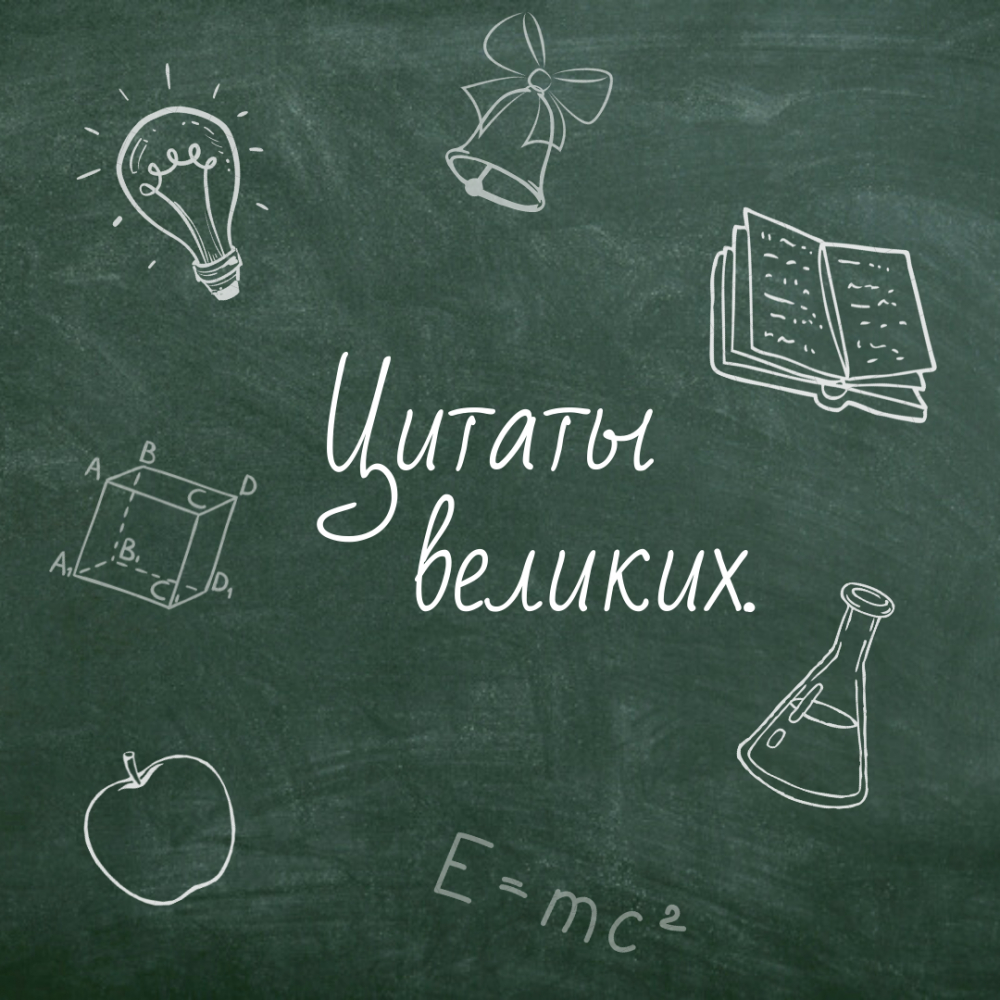 Цитаты
великих.
B
A
C D
B₁
A₁
C₁ D₁
E = mc²